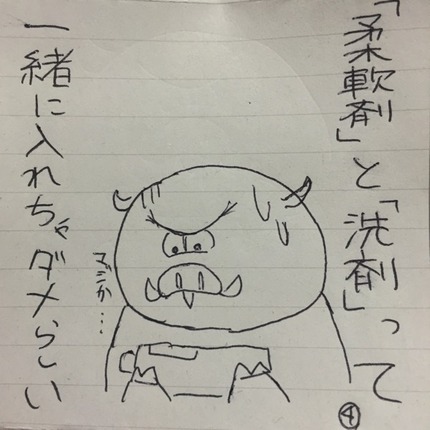 「柔軟剤」と「洗剤」って
一緒に入れちゃダメらしい
マジか…
④